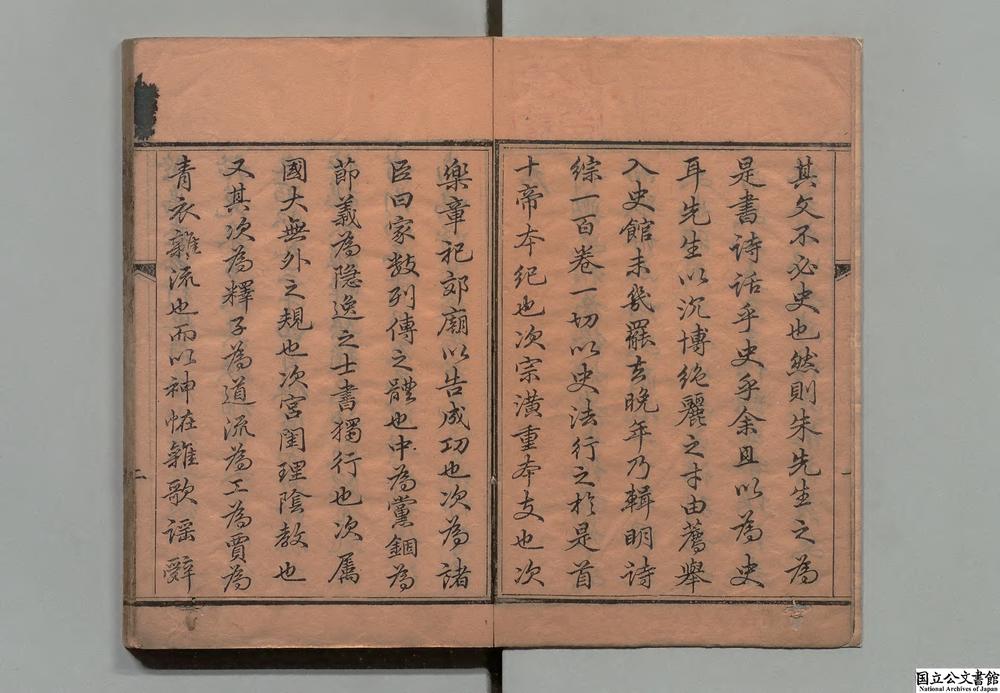 其文不必史也然則朱先生之為
是書詩話乎史乎余且以為史
耳先生以沉博絶麗之才由薦舉
入史館未幾罷去晚年乃輯明詩
綜一百卷一切以史法行之於是首
十帝本紀也次宗潢重本支也次
樂章祀郊廟以告成功也次為諸
臣曰家數列傳之體也中為黨錮為
節義為隐逸之士書獨行也次屬
國大無外之規也次宮閨理陰教也
又其次為釋子為道流為工為賈為
青衣雜流也而以神怪雜歌謡辭
一
二
国立公文書館
National Archives of Japan